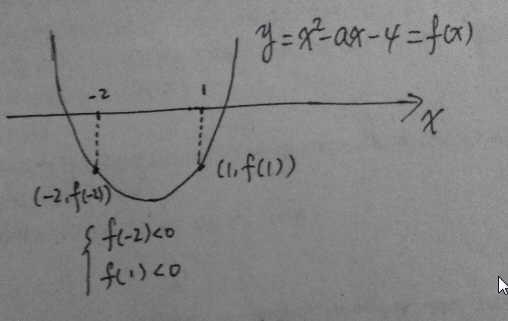 y=x²-ax-4=f(x)
-2 1
x
(-2,f(-2)) (1,f(1))
{ f(-2)<0
f(1)<0